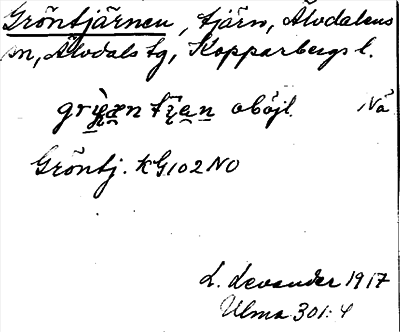 Gröntjärnen, tjärn, Älvdalens
sn, Älvdals tg, Kopparbergs l.
oböjl. Nå
Gröntj. KG102NO
L. Levander 1917
Ulma 301:4